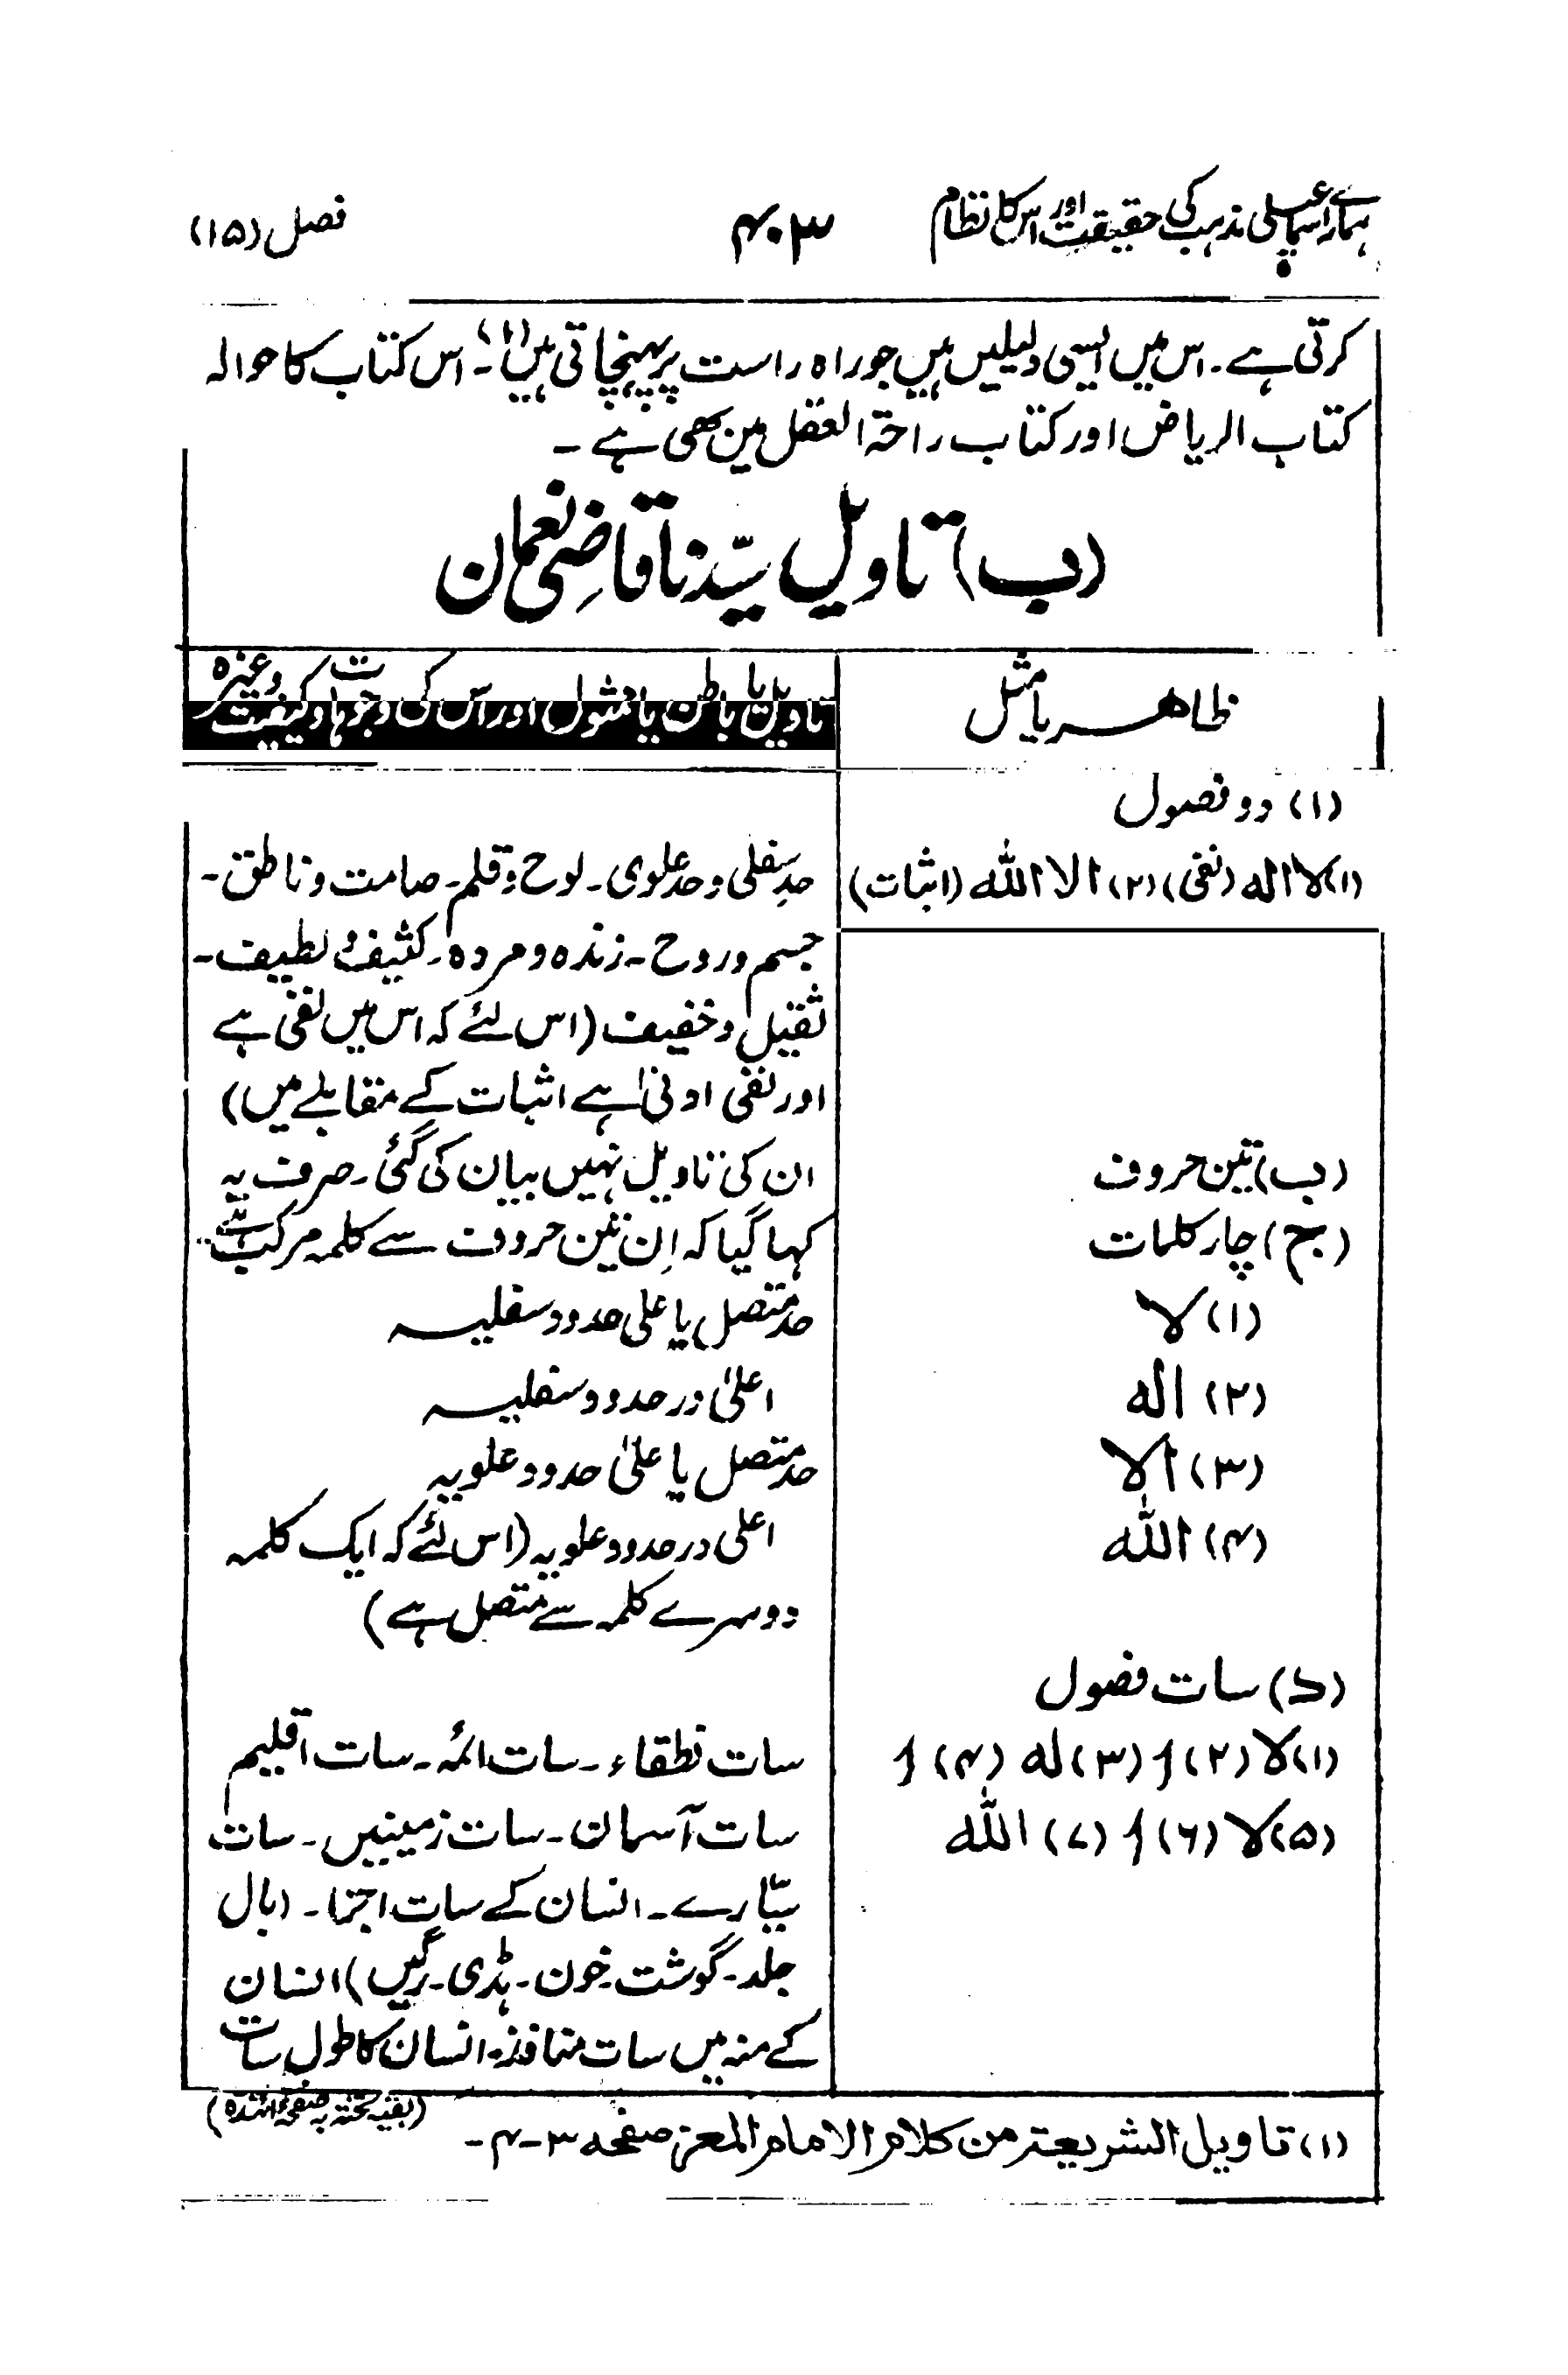 ہمارے اسماعیلی مذہب کی حقیقت اور اس کا نظام
۴۰۳
فصل (۱۵)
کرتی ہے۔ اس میں ایسی دلیلیں ہیں جو راہ راست پر پہنچاتی ہیں (۱)۔ اس کتاب کا حوالہ
کتاب الریاض اور کتاب راحۃ العقل میں بھی ہے ۔
(ب) تاویل سیّدنا قاضی نعمان
ظاہر یا مثل
تاویل یا باطن یا ممثول اور اس کی وجوہات و کیفیت وغیرہ
(۱) دو فصول
(۱) لا الہ (نفی) (۲) الا اللہ (اثبات)
حدِ سفلی و حد علوی۔ لوح و قلم۔ صامت و ناطق۔
جسم و روح ۔ زندہ و مردہ۔ کثیف و لطیف۔
ثقیل و خفیف (اس لئے کہ اس میں نفی ہے
اور نفی ادنیٰ ہے اثبات کے مقابلے میں)
(ب) تین حروف
ان کی تاویل نہیں بیان کی گئی۔ صرف یہ
(ج) چار کلمات
کہا گیا کہ اِن تین حروف سے کلمہ مرکب ہے۔
(۱) لا
حد متصل یا علی حدود سفلیہ
(۲) الہ
اعلیٰ در حدود سفلیہ
(۳) الا
حد متصل یا علیٰ حدود علویہ
(۴) اللہ
اعلی در حدود علویہ (اس لئے کہ ایک کلمہ
دوسرے کلمہ سے متصل ہے)
(د) سات فصول
(۱) لا (۲) ا (۳) لہ (۴) ا
سات نطقاء ۔ سات ائمہ ۔ سات اقلیم
(۵) لا (۶) ا (۷) اللہ
سات آسمان ۔ سات زمینیں ۔ سات
سیّارے ۔ انسان کے سات اجزا ۔ (بال
جلد۔ گوشت۔ خون۔ ہڈی۔ رگیں) انسان
کے منہ میں سات منافذ۔ انسان کا طول سات
(بقیہ تختہ بہ صفحہ آئندہ)
(۱) تاویل الشریعۃ من کلام الامام المعز صفحہ ۳-۴۔